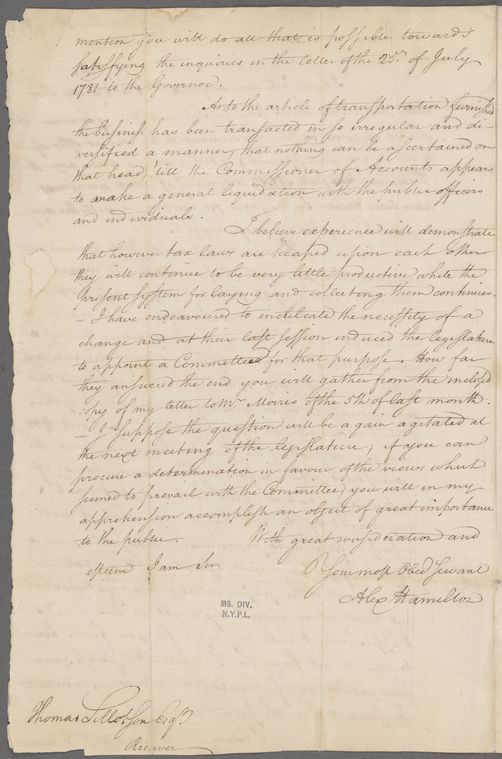 mention you will do all that is possible towards
satisfying the inquiries in the letter of the 25th of July
1781 to the Governor.
As to the article of transportation furnished
the business has been transacted in so irregular and di-
versified a manner, that nothing can be ascertained on
that head, till the Commissioner of Accounts appears
to make a general liquidation with the public officers
and individuals.
I believe experience will demonstrate
that however tax laws are heaped upon each other
they will continue to be very little productive while the
present system for laying and collecting them continues.
- I have endeavoured to instilcate the necessity of a
change and at their last session induced the legislature
to appoint a Committee for that purpose. How far
they answered the end you will gather from the inclosed
copy of my letter to Mr. Morris of the 5th of last month.
- I suppose the question will be a gain agitated at
the next meeting of the legislature; if you can
procure a determination in favour of the views which
seemed to prevail with the Committee, you will in my
apprehension accomplish an object of great importance
to the public. With great consideration and
esteem I am Sir
Your most Obed Servant
Alex Hamilton
MS. DIV.
N.Y.P.L.
Thomas Tillotson Esqr.
Receiver